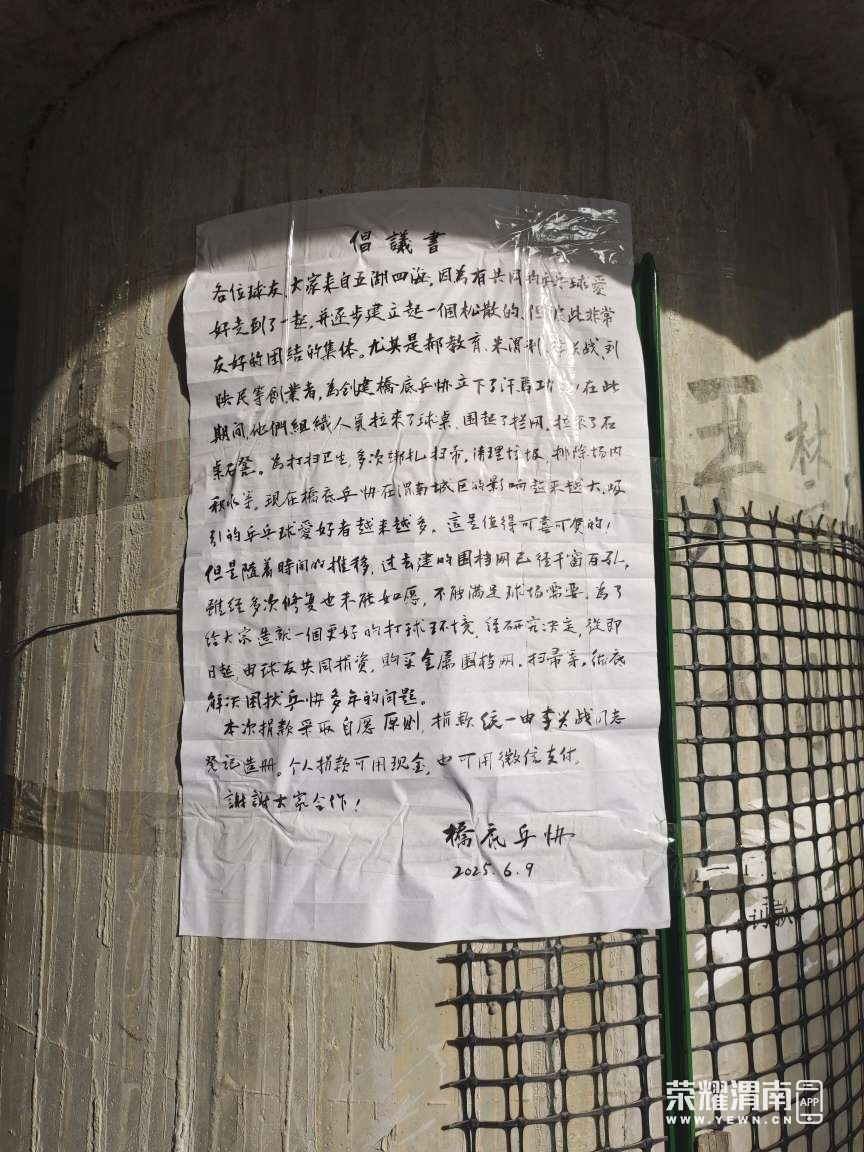 倡議書
各位球友,大家来自五湖四海,因為有共同的乒乓球爱
好走到了一起,并逐步建立起一個松散的,但彼此非常
友好的团结的集体。尤其是郝教育、米渭利、李兴战、刘
陕民等創業者,為创建橋底乒协立下了汗馬功
在此
期间,他們組織人氣拉来了球桌,围起了拦网,拉来了石
桌石凳。為打扫卫生,多次绑扎扫帚,清理垃圾,排除场内
积水等。现在橋底乒协在渭南城区的影响越来越大,吸
引的乒乓球爱好者越来越多。這是值得可喜可賀的!
但是隨着時间的推移,过去建的围档网已经千窗百孔,
雖经多次修复也未能如愿,不能满足球场需要,為了
给大家造就一個更好的打球环境,经研究决定,從即
日起,由球友共同捐资,购买金属围档网,扫帚等。彻底
解决困扰乒协多年的问题。
本次捐款采取自愿原则,捐款统一由李兴战同志
登记造册。个人捐款可用现金,也可用微信支付。
謝謝大家合作!
橋底乒协
2025.6.9
王
林
荣耀渭南
APP
WWW.YEWN.CN